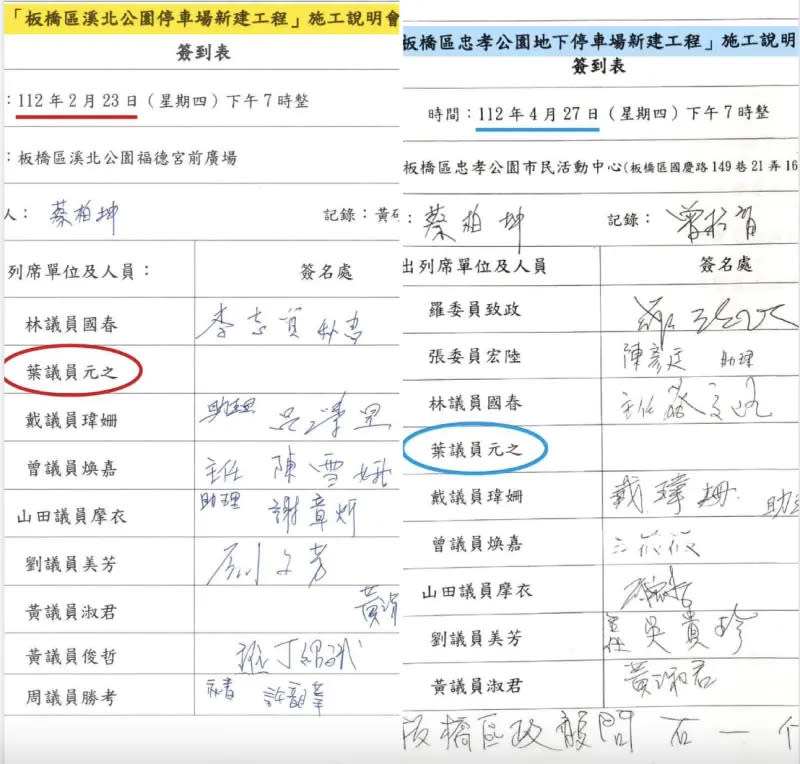 「板橋區溪北公園停車場新建工程」施工說明會
簽到表
：112 年 2 月 23 日（星期四）下午 7 時整
：板橋區溪北公園福德宮前廣場
人： 蔡柏坤 記錄：黃
列席單位及人員： 簽名處
林議員國春 李志
葉議員元之
戴議員瑋姍 助理
曾議員煥嘉 主任 陳雪
山田議員摩衣 助理 謝章
劉議員美芳
黃議員淑君 黃
黃議員俊哲
周議員勝考 秘書
板橋區忠孝公園地下停車場新建工程」施工說明
簽到表
時間：112 年 4 月 27 日（星期四）下午 7 時整
板橋區忠孝公園市民活動中心(板橋區國慶路 149 巷 21 弄 16
：蔡柏坤 記錄：
出列席單位及人員 簽名處
羅委員致政
張委員宏陸 陳彥廷 助理
林議員國春 主任
葉議員元之
戴議員瑋姍 戴瑋姍
曾議員煥嘉
山田議員摩衣
劉議員美芳 主任 吳貴珍
黃議員淑君 黃淑君
板橋區政顧問 石一